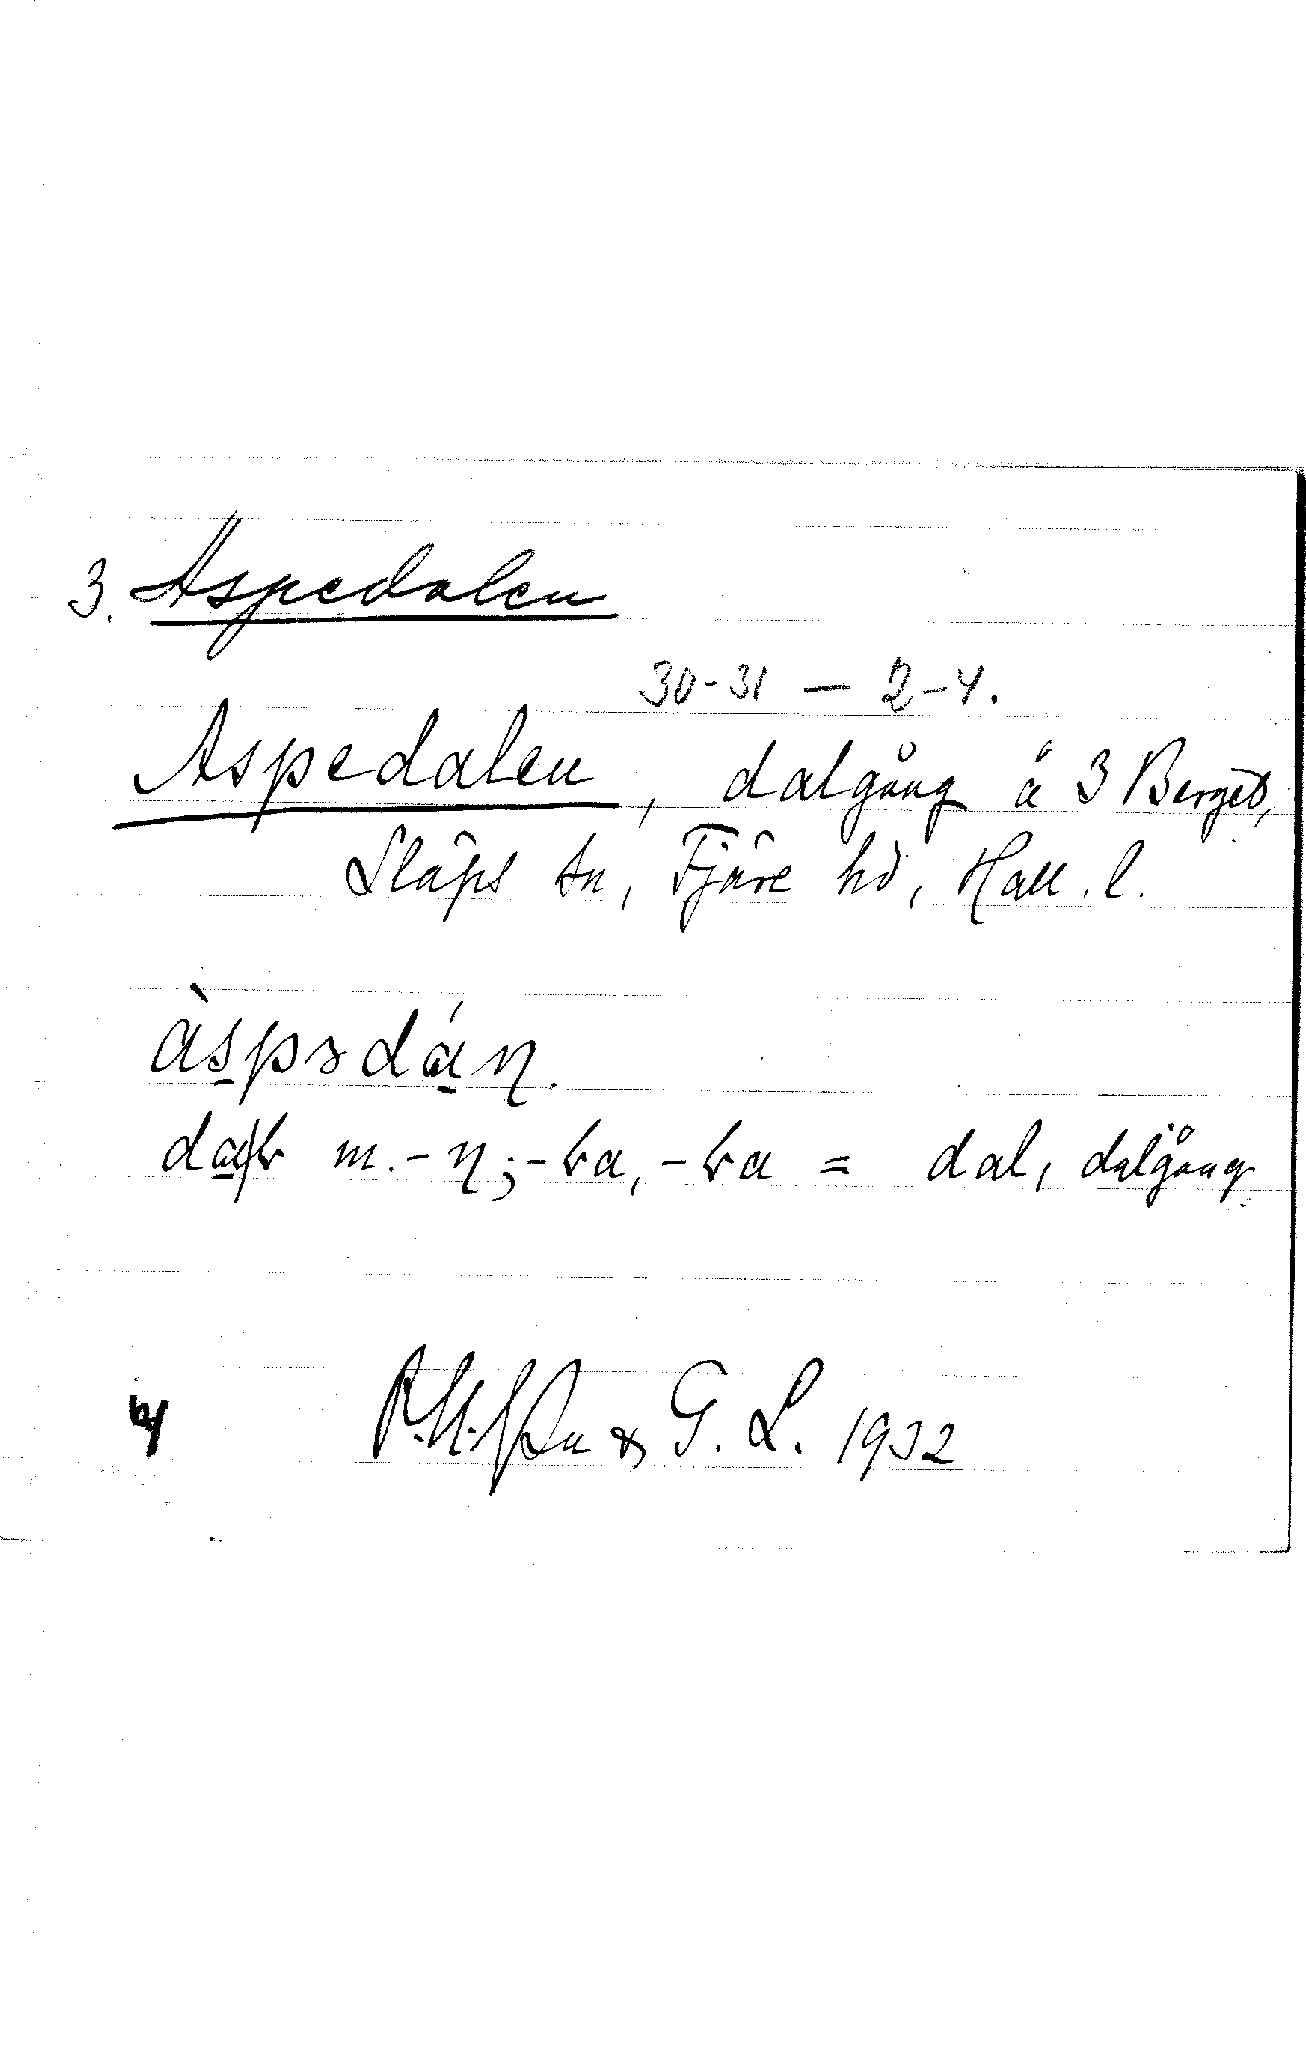 3. Aspedalen
30-31 — 2-4.
Aspedalen, dalgång å 3 Berget,
Släps sn, Fjäre hd, Hall. l.
àspədán.
m. -n; -ɽa, -ɽa = dal, dalgång
& G. L. 1932